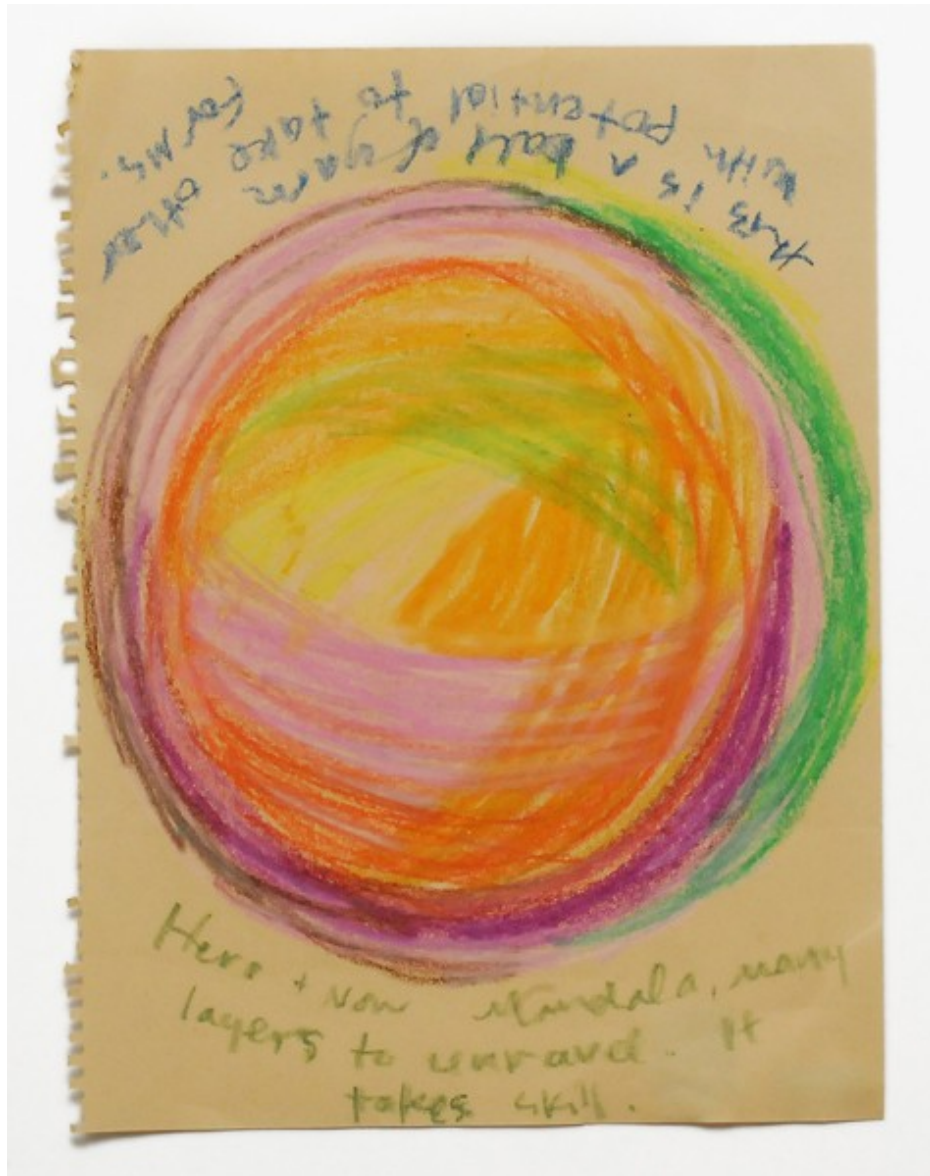 this is a ball of yarn
with potential to take other
forms.
Here + Now Mandala, many
layers to unravel. It
takes skill.